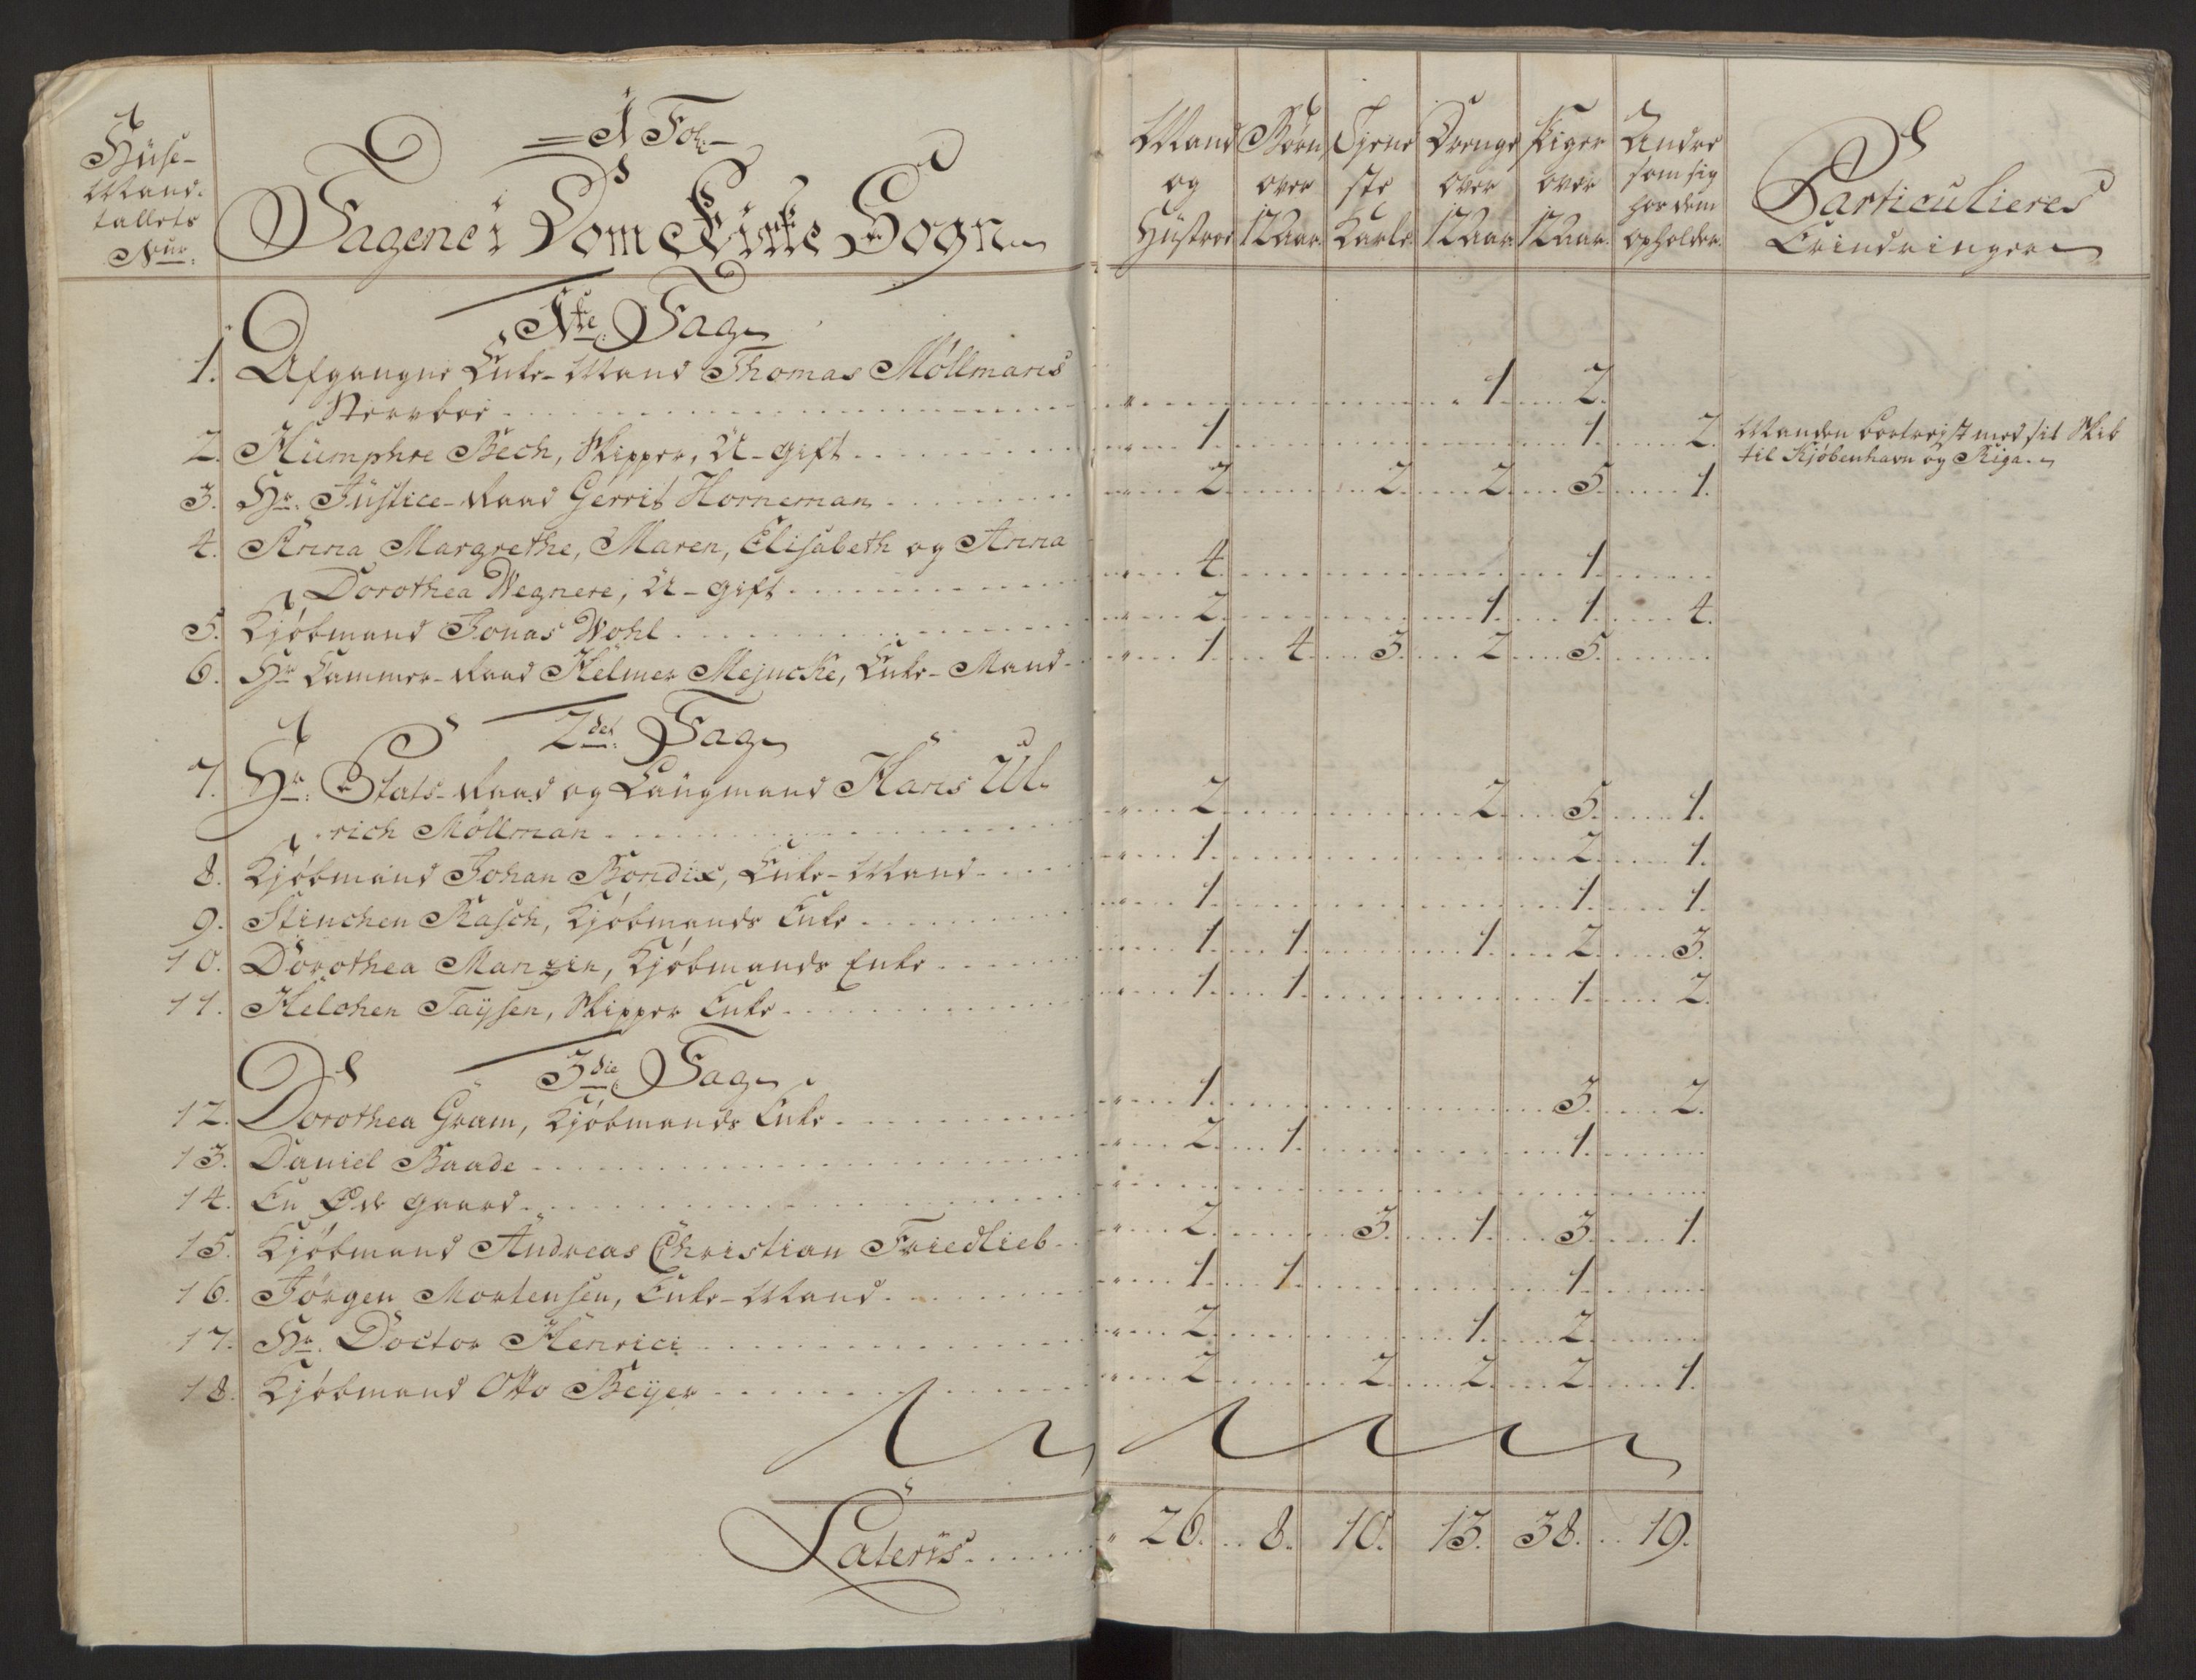 Huse-
Mand-
tallets
Nur:
1 Fol:
Tagene i Dom Kirke Sogn
Mand
og
Hustroe
Børn
over
12 Aar
Tjene
ste
Karle
Drenge
over
12 Aar
Piger
over
12 Aar.
Andre
som sig
hos dem
opholder.
Particulieres
Erindringer
1te Tag
1. Afgangne Enke-Mand Thomas Möllmans
Stervboe 1 2.
2. Humphre Bech, Skipper, U-gift 1. 1. 2. Manden bortrejst med sit Skib
til Kjøbenhavn og Riga.
3. Hr. Justice-Raad Gerrit Horneman 2. 2. 2. 5. 1.
4. Anna Margrethe, Maren, Elisabeth og Anna
Dorothea Wegnere, U-gift 4. 1.
5. Kjøbmand Jonas Wohl 2. 1. 1. 4.
6. Hr Cammer-Raad Helmer Mejncke, Enke-Mand 1. 4. 3. 2. 5.
2det Tag
7. Hr. Etats-Raad og Laugmand Hans Ul-
rich Möllman 2. 2. 5. 1.
8. Kjøbmand Johan Bondix, Enke-Mand 1. 2. 1.
9. Stinchen Rasch, Kjøbmands Enke 1. 1. 1.
10. Dorothea Manzin, Kjøbmands Enke 1. 1. 1. 2. 3.
11. Helchen Taysen, Skipper Enke 1. 1. 1. 2.
3die Tag
12. Dorothea Gram, Kjøbmands Enke 1. 3. 2.
13. Daniel Baade 2. 1. 1.
14. En Øde gaard
15. Kjøbmand Andreas Christian Friedlieb 2. 3. 1. 3. 1.
16. Jørgen Mortensen, Enke-Mand 1. 1. 1.
17. Hr. Doctor Henrici 2. 1. 2.
18. Kjøbmand Otto Beyer 2. 2. 2. 2. 1.
Lateris 26. 8. 10. 13. 38. 19.